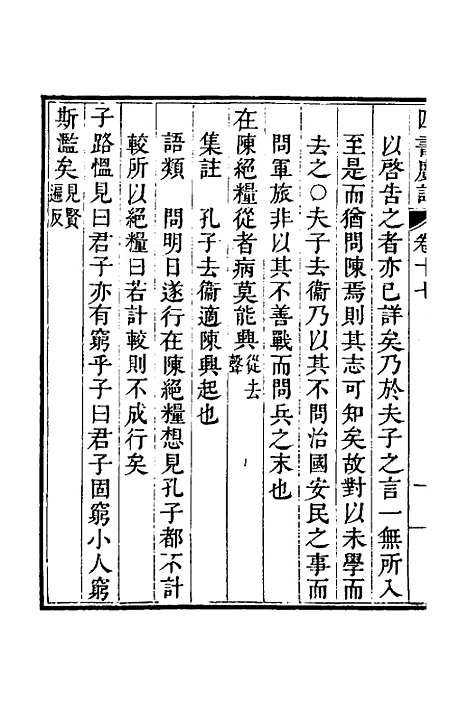 四書
卷十七
以啓告之者亦已詳矣乃於夫子之言一無所入
至是而猶問陳焉則其志可知矣故對以未學而
去之○夫子去衞乃以其不問治國安民之事而
問軍旅非以其不善戰而問兵之末也
在陳絕糧從者病莫能興從去聲
集註 孔子去衞適陳興起也
語類 問明日遂行在陳絕糧想見孔子都不計
較所以絕糧曰若計較則不成行矣
子路慍見曰君子亦有窮乎子曰君子固窮小人窮
斯濫矣見賢遍反